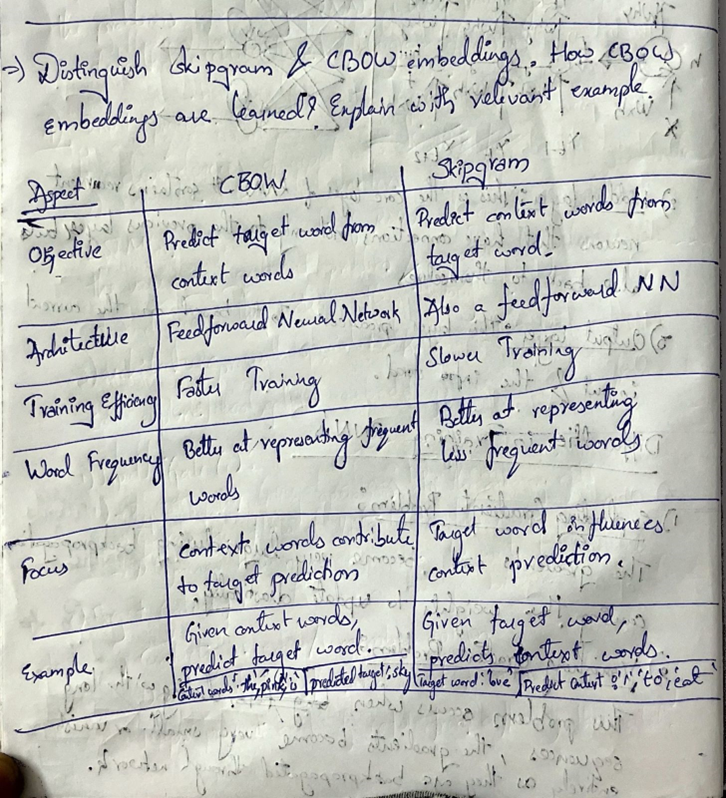 => Distinguish skipgram & CBOW embeddings. How CBOW
embeddings are learned? Explain with relevant example.
Aspect
CBOW
Skipgram
Objective
Predict target word from
context words
Predict context words from
target word.
Architecture
Feedforward Neural Network
Also a feedforward NN
Training Efficiency
Faster Training
Slower Training
Word Frequency
Better at representing frequent
words
Better at representing
less frequent words
Focus
context words contribute
to target prediction
Target word influences
context prediction.
Example
Given context words,
predict target word.
Given target word,
predicts context words.
Context words: 'the, pink, is
predicted target: sky
Target word: love
Predict context : 'I', 'to', 'eat'